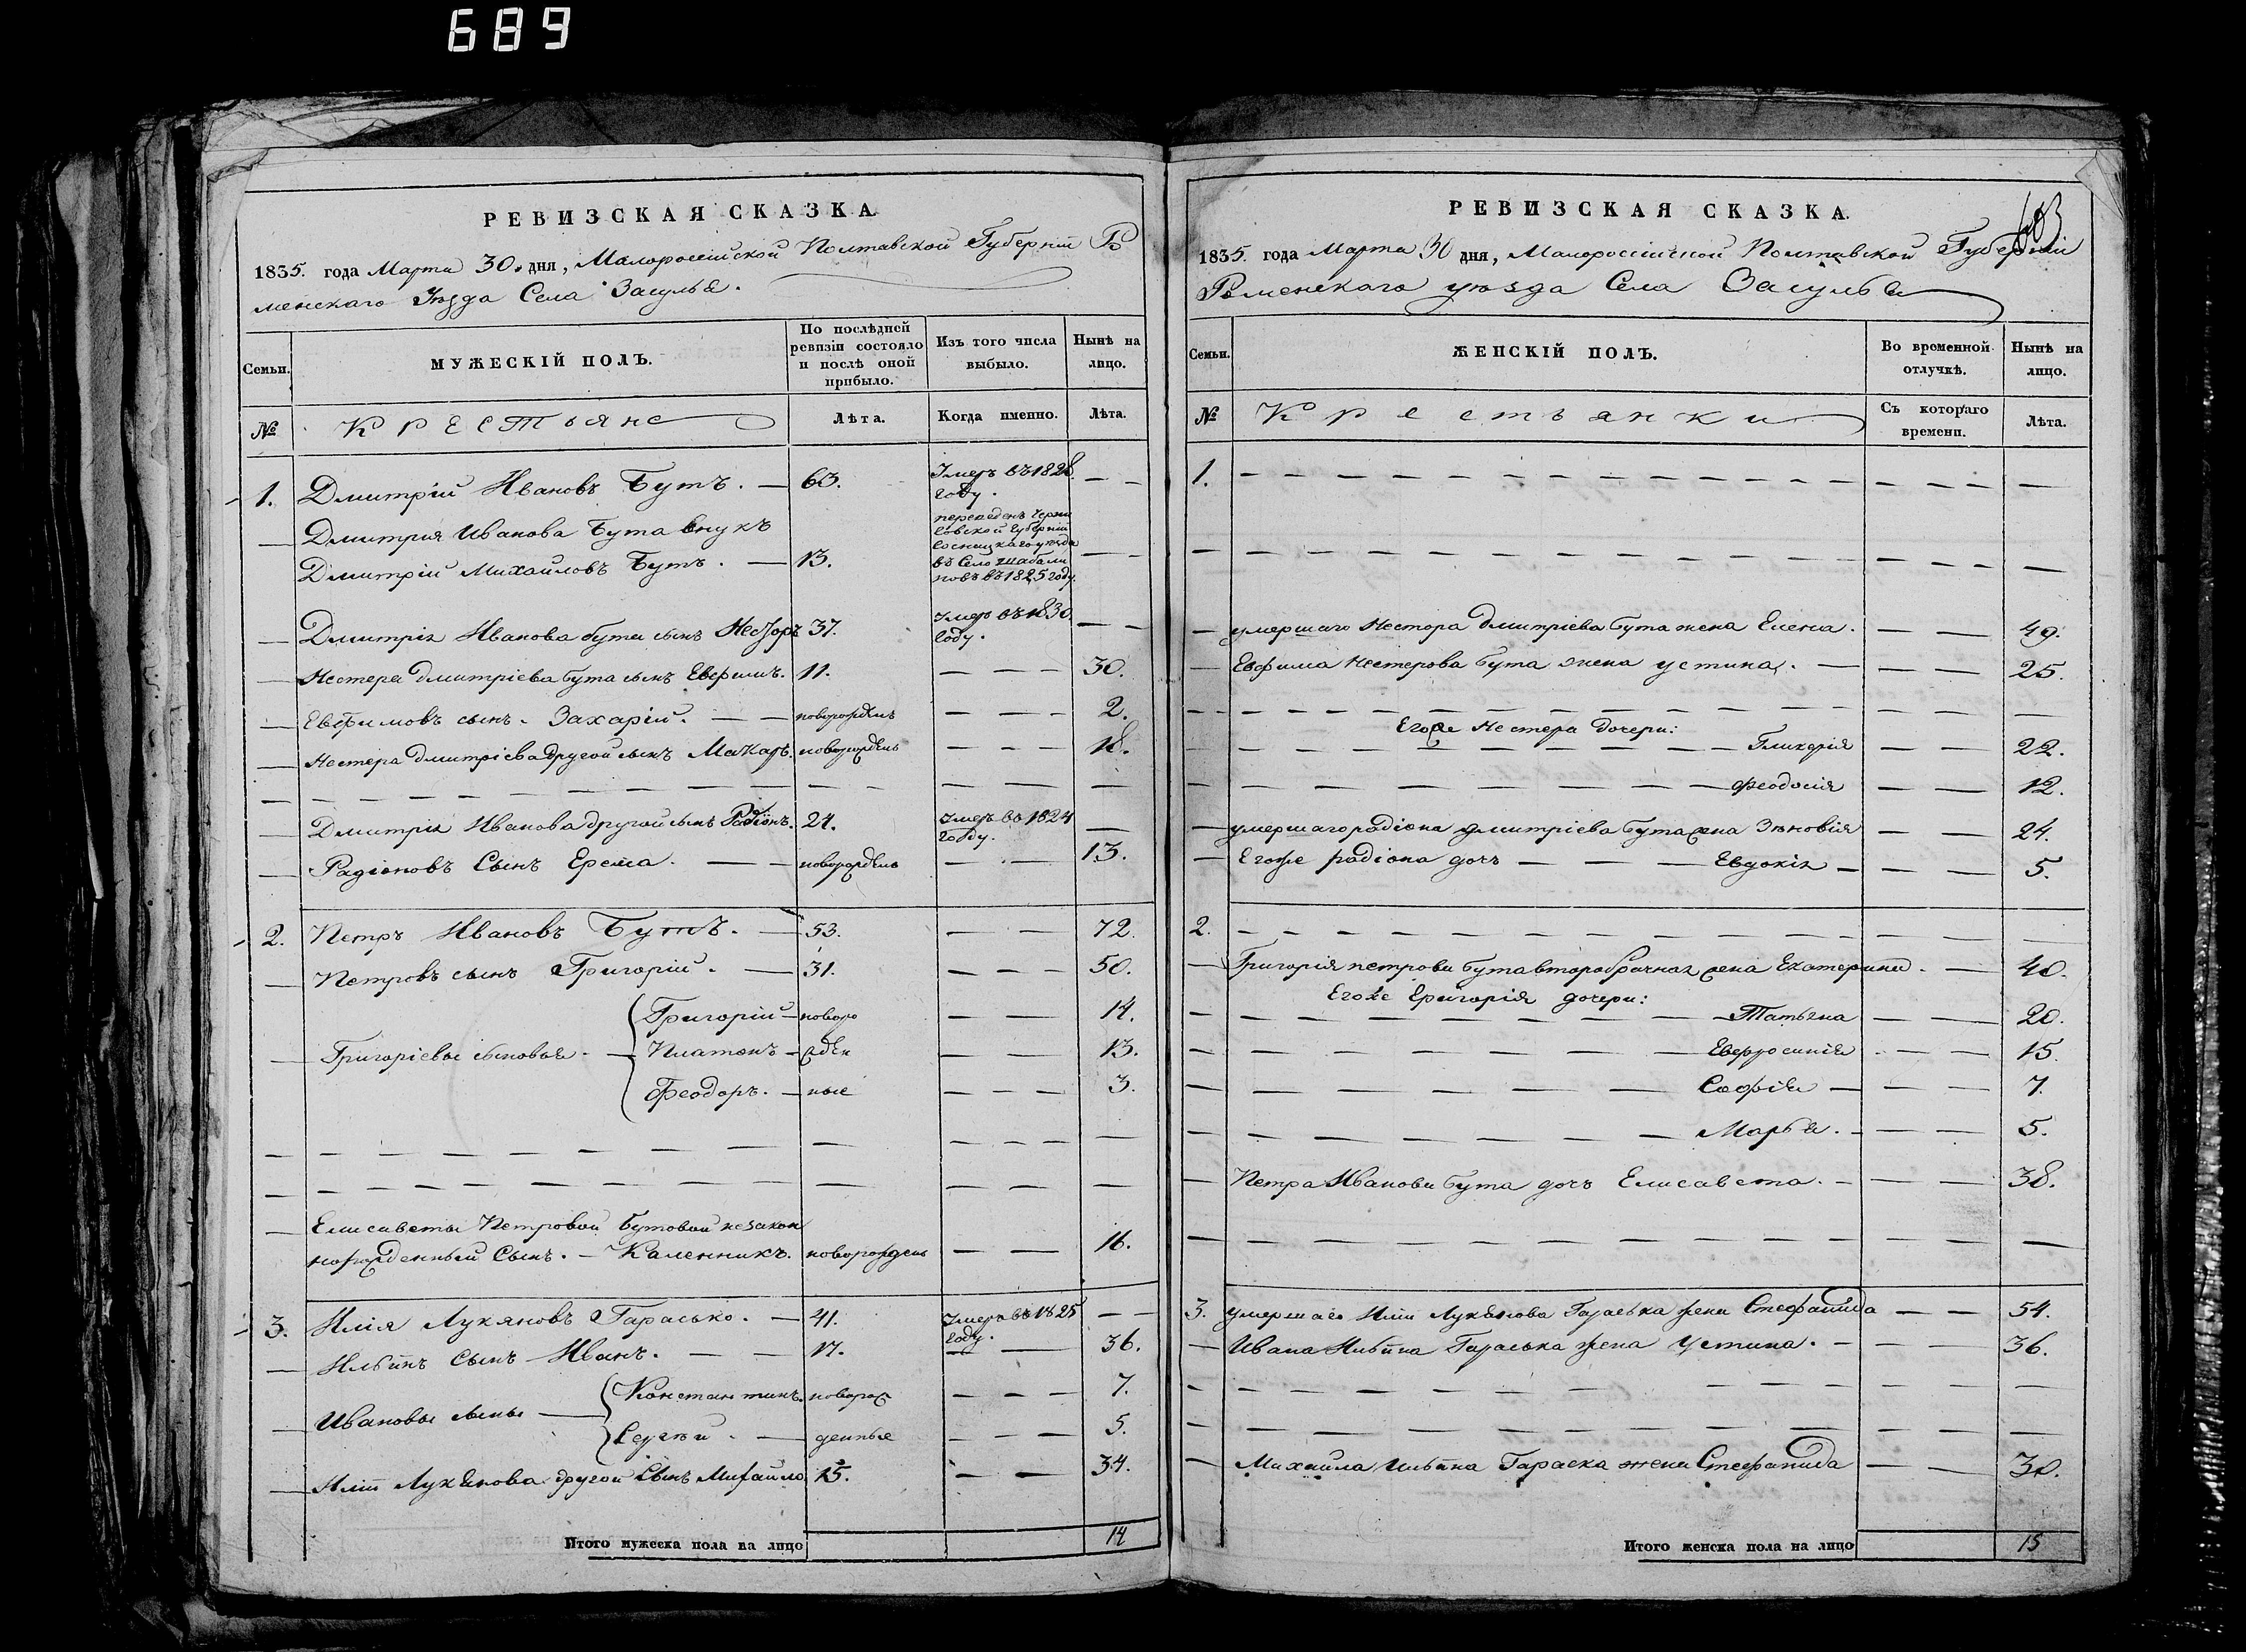 689
РЕВИЗСКАЯ СКАЗКА
1835. года Марта 30. дня, Малороссійской Полтавской Губерніи Ро
менскаго Уѣзда Села Засулья.
Семьи.
МУЖЕСКІЙ ПОЛЪ.
По послѣдней ревизіи состояло и послѣ оной прибыло.
Изъ того числа выбыло.
Нынѣ на лицо.
№
Крестьяне
Лѣта.
Когда именно.
Лѣта.
1. Дмитрій Ивановъ Бутъ. — 63. Умеръ въ 1828 году. — —
— Дмитрія Иванова Бута внукъ
Дмитрій Михайловъ Бутъ. — 13. переведенъ Черни
говской Губерніи
Сосницкаго уѣзда
въ Село Шабали
новъ въ 1825 году. — —
— Дмитрія Иванова бута сынъ Несторъ 37. Умеръ въ 1830. году. — —
— Нестера Дмитріева Бута сынъ Евфимъ. 11. — — — 30.
— Евфимовъ сынъ. Захарій. — — новорожденъ — — — 2.
— Нестера Дмитріева другой сынъ Макаръ. новорожденъ — — — 18.
— Дмитрія Иванова другой сынъ Радіонъ. 24. Умеръ въ 1824 году. —
— Радіоновъ Сынъ Ерема. — — новорожденъ — — 13.
2. Петръ Ивановъ Бутъ. — 53. — — 72.
— Петровъ сынъ Григорій. — 31. — — — 50.
Григорій — новоро — — 14.
— Григоріевы сыновья. — Платонъ — жден — — 13.
Феодоръ. — ные — — — 3.
— Елисаветы Петровой Бутовой незакон
норожденный Сынъ. — Каленникъ. новорожденъ — — 16.
3. Илія Лукяновъ Гарасько. — 41. Умеръ въ 1825 году. — —
— Ильинъ Сынъ Иванъ. — — 17. — — 36.
Константинъ. новорож — — — 7.
— Ивановы сыны —
Сергѣй. — денные — — — 5.
— Иліи Лукянова другой Сынъ Михайло 15. — — 34.
Итого мужеска пола на лицо 14
РЕВИЗСКАЯ СКАЗКА.
1835. года Марта 30 дня, Малороссійской Полтавской Губерніи
Роменскаго уѣзда Села Засулья
Семьи.
ЖЕНСКІЙ ПОЛЪ.
Во временной отлучкѣ.
Нынѣ на лицо.
№
Крестьянки
Съ котораго времени.
Лѣта.
1. — — —
— умершаго Нестора Дмитріева Бута жена Елена. — — 49.
— Евфима Нестерова Бута жена Устина. — — — 25.
Егоже Нестера дочери:
— — — Гликерія — — 22.
— — — Феодосія — — 12.
— умершаго радіона дмитріева Бута жена Зѣновія — — 24.
— Егоже радіона дочь — — — Евдокія — — — 5.
2. — — —
— Григорія петрова Бута второбрачная жена Екатерина. — 40.
Егоже Григорія дочери:
— — — Татьяна — — 20.
— — — Евфросинія — — 15.
— — — Софія — — — 7.
— — — Марья. — — — 5.
— Петра Иванова Бута дочь Елисавета. — — — 38.
3. умершаго Иліи Лукянова Гараська жена Стефанида — — 54.
— Ивана Ильина Гараська жена Устина. — — — 36.
— Михайла Ильина Гараска жена Стефанида — — 30.
Итого женска пола на лицо 15